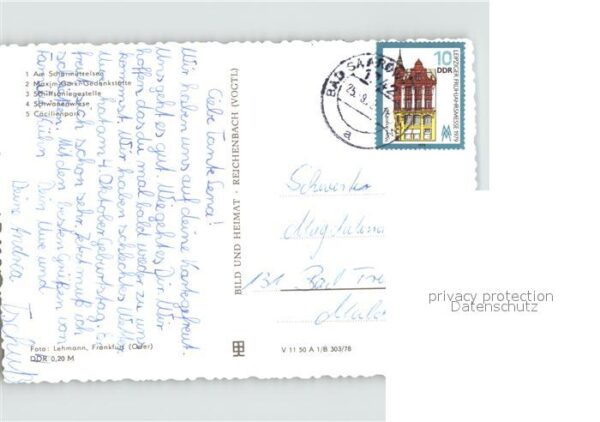 1 Am Scharmützelsee
2 Maxim-Gorki-Gedenkstätte
3 Schiffsanlegestelle
4 Schwanenwiese
5 Cäcilienpark
Liebe Tante Lona!
Wir haben uns auf deine Karte gefreut.
Uns geht es gut. Wie geht es Dir. Wir
hoffen das du mal bald wieder zu uns
kommst. Wir haben schlechtes Wetter.
hat am 4. Oktober Geburtstag. Er
freut sich schon sehr. Jetzt muß ich
schließen. Mit den besten Grüßen von
Dein Uwe und
Deine Andrea
Tschüß
Foto: Lehmann, Frankfurt (Oder)
DDR 0,20 M
BILD UND HEIMAT · REICHENBACH (VOGTL)
V 11 50 A 1/B 303/78
BAD SAAROW
a
10
DDR
LEIPZIGER FRÜHJAHRSMESSE 1979
Schwester
Magdalena
Bad
privacy protection
Datenschutz